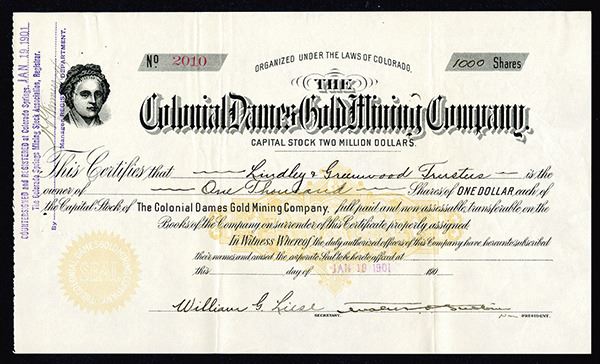 No 2010
1000 Shares
ORGANIZED UNDER THE LAWS OF COLORADO.
THE
Colonial Dames Gold Mining Company.
CAPITAL STOCK TWO MILLION DOLLARS.
This Certifies that Lindley & Greenwood Trustees is the
owner of One Thousand Shares of ONE DOLLAR each of
the Capital Stock of The Colonial Dames Gold Mining Company, full paid and non assessable, transferable on the
Books of the Company on surrender of this Certificate properly assigned.
In Witness Whereof the duly authorized officers of this Company have hereunto subscribed
their names and caused the corporate Seal to be hereto affixed at
this day of JAN 19 1901 190
William G. Liese
SECRETARY.
PRESIDENT.
COUNTERSIGNED and REGISTERED at Colorado Springs, JAN 19 1901
The Colorado Springs Mining Stock Association, Registrar.
By
Manager REGISTRY DEPARTMENT.